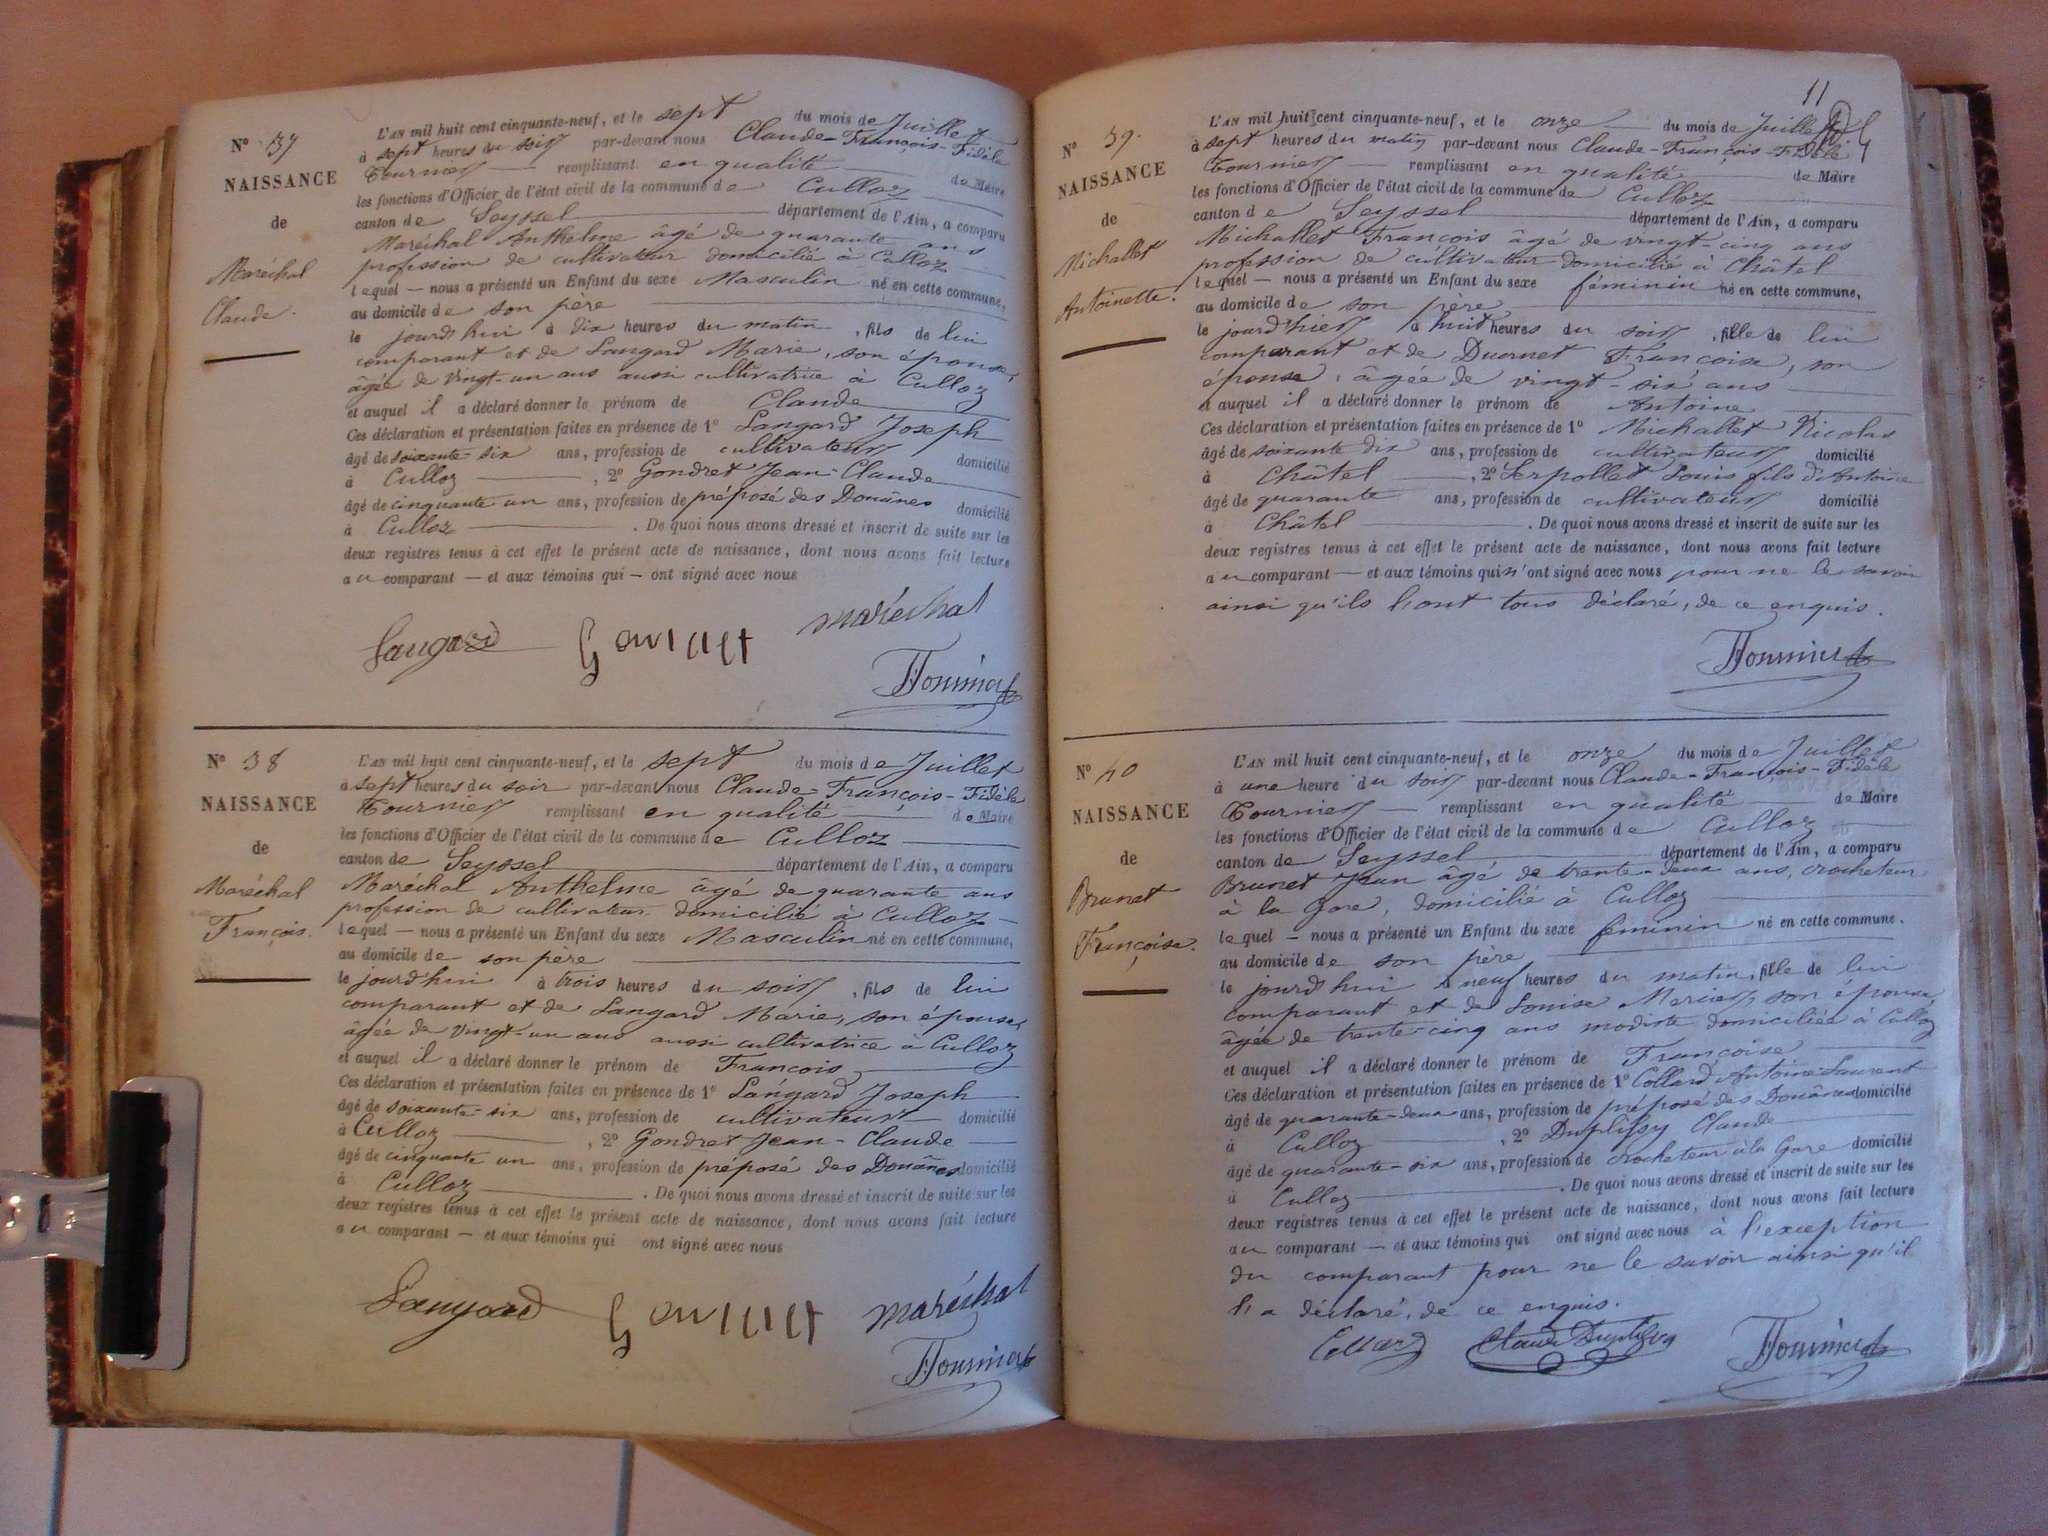 N° 37
NAISSANCE
de
Maréchal
Claude.
L'AN mil huit cent cinquante-neuf, et le sept du mois de Juillet
à sept heures du soir par-devant nous Claude-François-Fidèle
Tournier remplissant en qualité de Maire
les fonctions d'Officier de l'état civil de la commune de Culloz
canton de Seyssel département de l'Ain, a comparu
Maréchal Anthelme âgé de quarante ans
profession de cultivateur domicilié à Culloz
lequel — nous a présenté un Enfant du sexe Masculin né en cette commune,
au domicile de son père
le jourd'hui à dix heures du matin, fils de lui
comparant et de Langard Marie, son épouse,
âgée de vingt-un ans aussi cultivatrice à Culloz
et auquel il a déclaré donner le prénom de Claude
Ces déclaration et présentation faites en présence de 1° Langard Joseph
âgé de soixante-six ans, profession de cultivateur domicilié
à Culloz, 2° Gondret Jean-Claude
âgé de cinquante un ans, profession de préposé des Douânes domicilié
à Culloz. De quoi nous avons dressé et inscrit de suite sur les
deux registres tenus à cet effet le présent acte de naissance, dont nous avons fait lecture
au comparant — et aux témoins qui — ont signé avec nous
Langard maréchal
Tournier
N° 38
NAISSANCE
de
Maréchal
François.
L'AN mil huit cent cinquante-neuf, et le sept du mois de Juillet
à sept heures du soir par-devant nous Claude-François-Fidèle
Tournier remplissant en qualité de Maire
les fonctions d'Officier de l'état civil de la commune de Culloz
canton de Seyssel département de l'Ain, a comparu
Maréchal Anthelme âgé de quarante ans
profession de cultivateur domicilié à Culloz
lequel — nous a présenté un Enfant du sexe Masculin né en cette commune,
au domicile de son père
le jourd'hui à trois heures du soir, fils de lui
comparant et de Langard Marie, son épouse,
âgée de vingt-un ans aussi cultivatrice à Culloz
et auquel il a déclaré donner le prénom de François
Ces déclaration et présentation faites en présence de 1° Langard Joseph
âgé de soixante-six ans, profession de cultivateur domicilié
à Culloz, 2° Gondret Jean-Claude
âgé de cinquante un ans, profession de préposé des Douânes domicilié
à Culloz. De quoi nous avons dressé et inscrit de suite sur les
deux registres tenus à cet effet le présent acte de naissance, dont nous avons fait lecture
au comparant — et aux témoins qui ont signé avec nous
Langard maréchal
Tournier
11
N° 39.
NAISSANCE
de
Michallet
Antoinette.
L'AN mil huit cent cinquante-neuf, et le onze du mois de Juillet
à sept heures du matin par-devant nous Claude-François-Fidèle
Tournier remplissant en qualité de Maire
les fonctions d'Officier de l'état civil de la commune de Culloz
canton de Seyssel département de l'Ain, a comparu
Michallet François âgé de vingt-cinq ans
profession de cultivateur domicilié à Châtel
lequel — nous a présenté un Enfant du sexe féminin né en cette commune,
au domicile de son père
le jourd'hier à huit heures du soir, fille de lui
comparant et de Ducrnet Françoise, son
épouse, âgée de vingt-six ans
et auquel il a déclaré donner le prénom de Antoine
Ces déclaration et présentation faites en présence de 1° Michallet Nicolas
âgé de soixante dix ans, profession de cultivateur domicilié
à Châtel, 2° Serpollet Louis fils d'Antoine
âgé de quarante ans, profession de cultivateur domicilié
à Châtel. De quoi nous avons dressé et inscrit de suite sur les
deux registres tenus à cet effet le présent acte de naissance, dont nous avons fait lecture
au comparant — et aux témoins qui n'ont signé avec nous pour ne le savoir
ainsi qu'ils l'ont tous déclaré, de ce enquis.
Tournier
N° 40
NAISSANCE
de
Brunet
Françoise.
L'AN mil huit cent cinquante-neuf, et le onze du mois de Juillet
à une heure du soir par-devant nous Claude-François-Fidèle
Tournier — remplissant en qualité de Maire
les fonctions d'Officier de l'état civil de la commune de Culloz
canton de Seyssel département de l'Ain, a comparu
Brunet Jean âgé de trente-deux ans, crocheteur
à la Gare, domicilié à Culloz
lequel — nous a présenté un Enfant du sexe féminin né en cette commune.
au domicile de son père
le jourd'hui à neuf heures du matin, fille de lui
comparant et de Louise Mercier, son épouse,
âgée de trente-cinq ans modiste domiciliée à Culloz
et auquel il a déclaré donner le prénom de Françoise
Ces déclaration et présentation faites en présence de 1° Collard Antoine Laurent
âgé de quarante-deux ans, profession de préposé des Douânes domicilié
à Culloz, 2° Duplissy Claude
âgé de quarante-six ans, profession de crocheteur à la Gare domicilié
à Culloz. De quoi nous avons dressé et inscrit de suite sur les
deux registres tenus à cet effet le présent acte de naissance, dont nous avons fait lecture
au comparant — et aux témoins qui ont signé avec nous à l'exception
du comparant pour ne le savoir ainsi qu'il
l'a déclaré, de ce enquis.
Collard Claude Duplissy Tournier